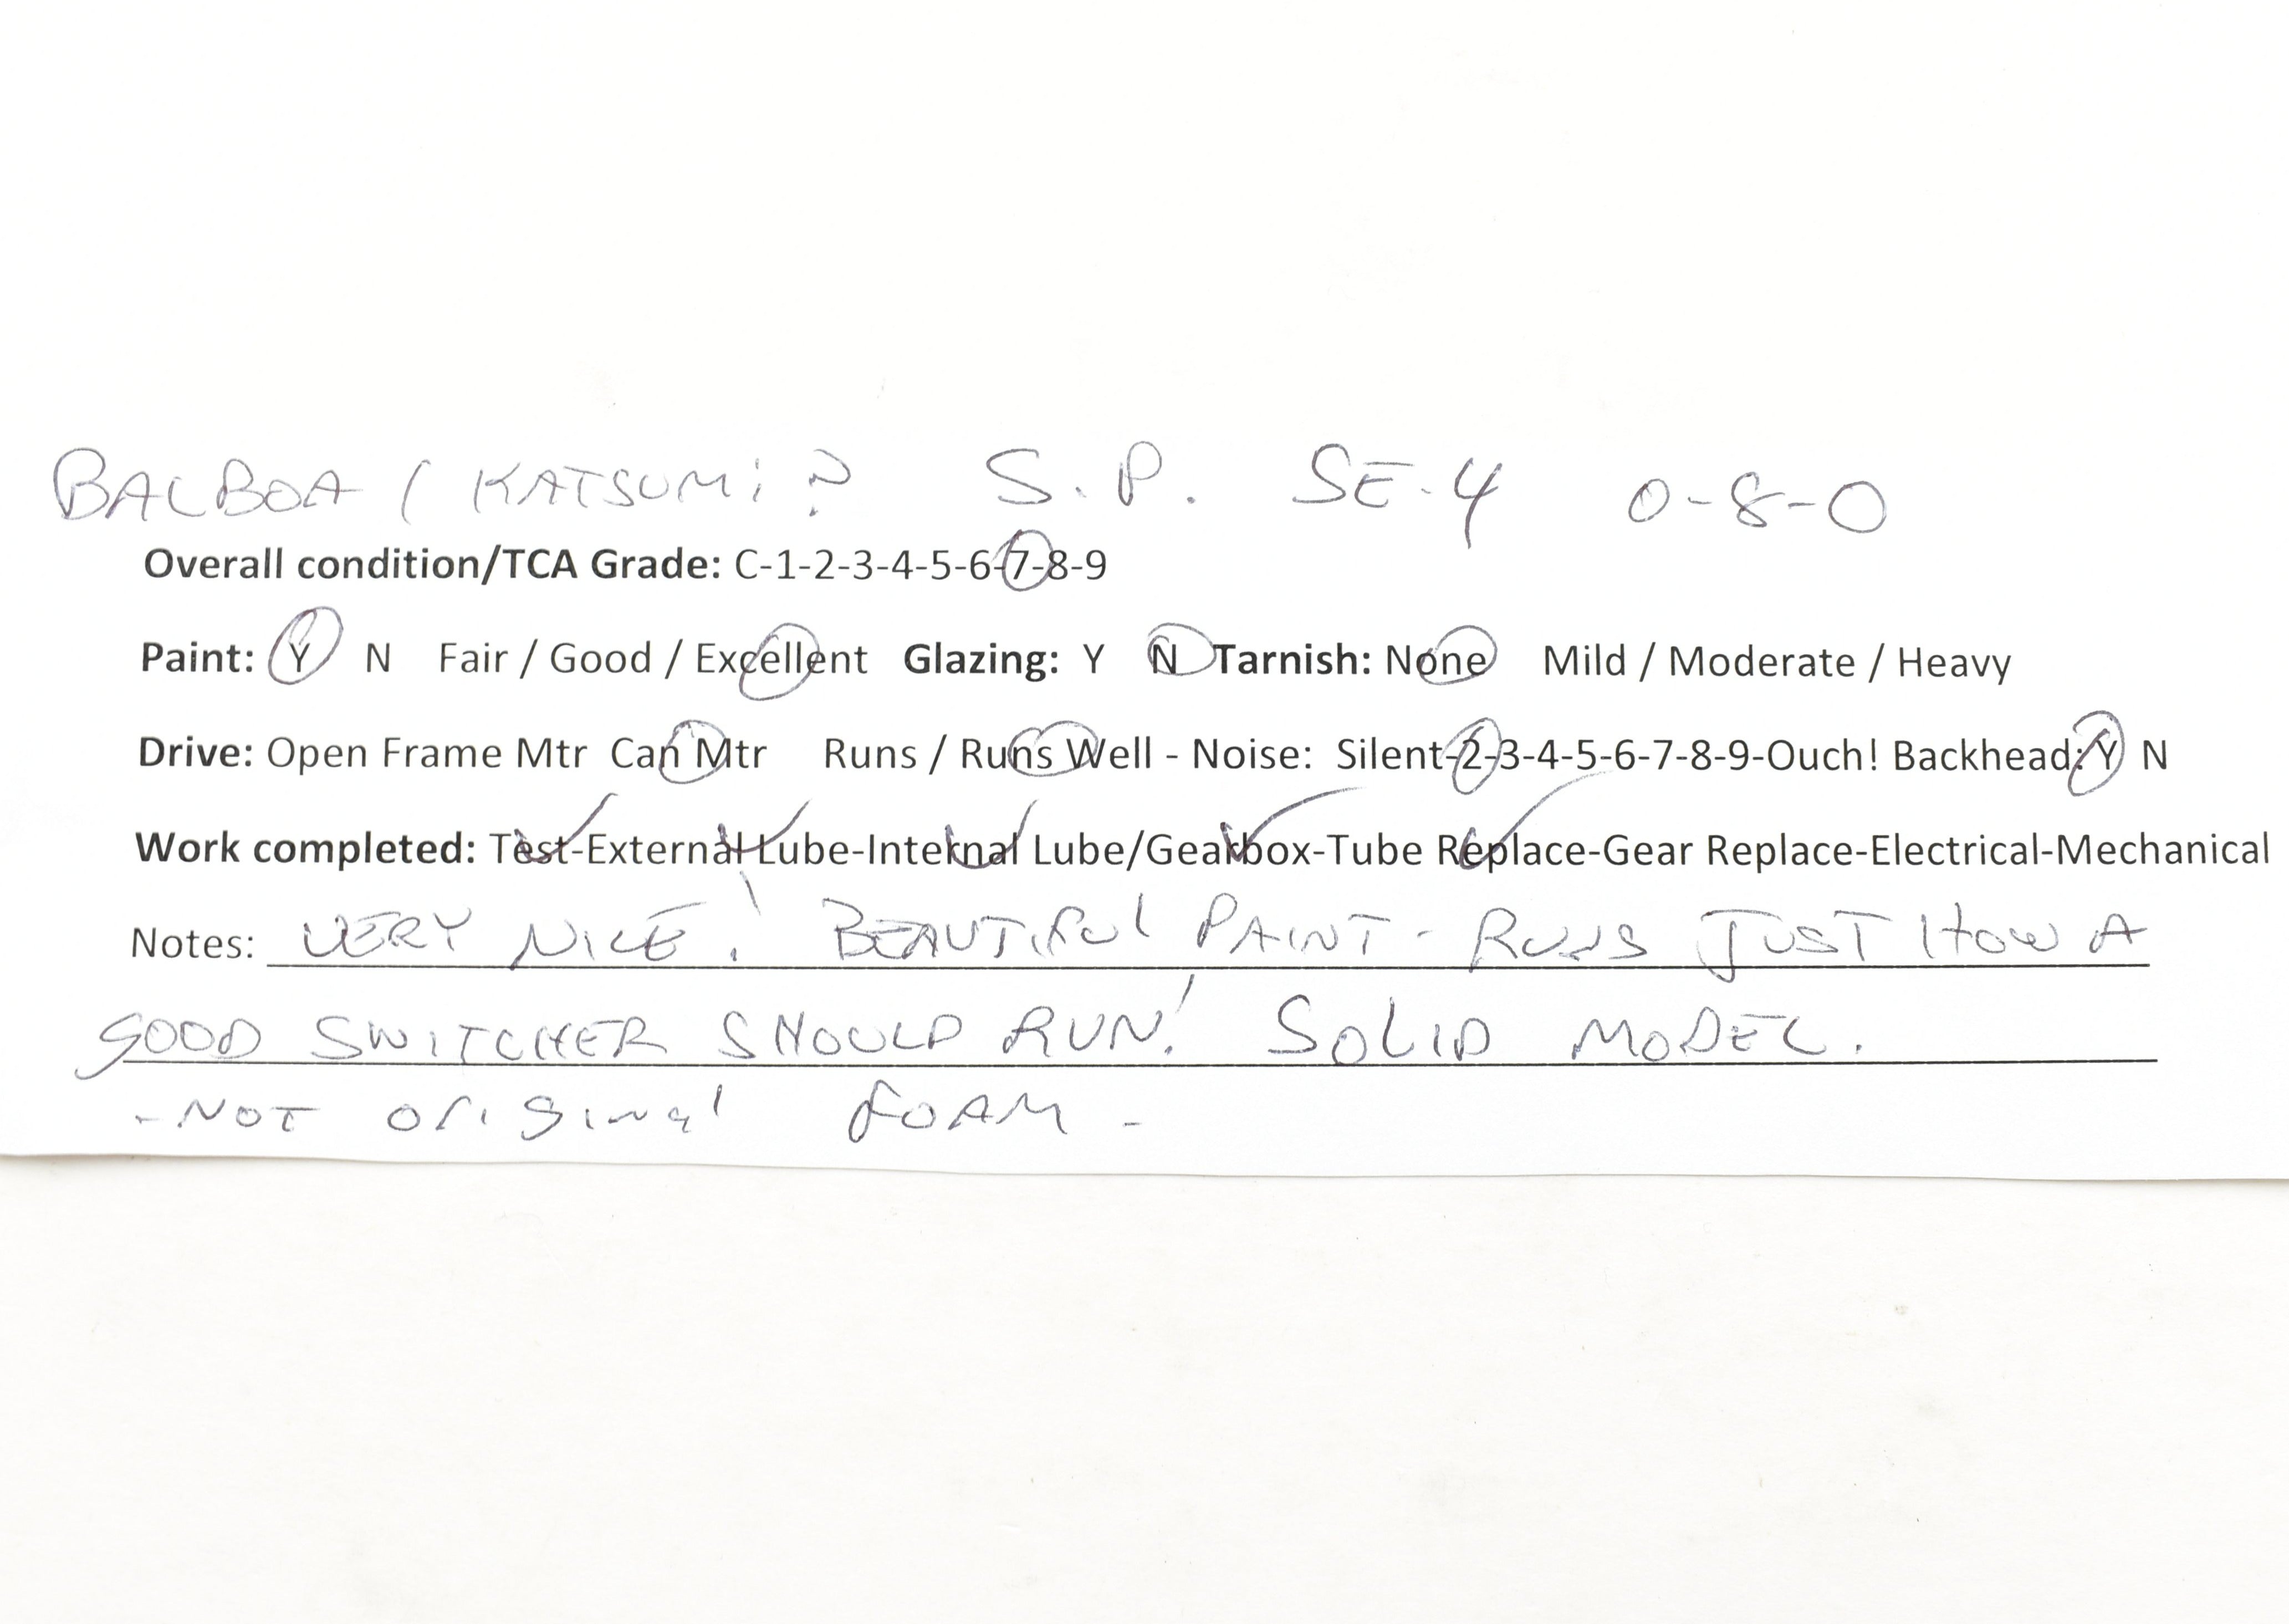 BALBOA / KATSUMi? S.P. SE-4 0-8-0
Overall condition/TCA Grade: C-1-2-3-4-5-6-7-8-9
Paint: Y N Fair / Good / Excellent Glazing: Y N Tarnish: None Mild / Moderate / Heavy
Drive: Open Frame Mtr Can Mtr Runs / Runs Well - Noise: Silent-2-3-4-5-6-7-8-9-Ouch! Backhead: Y N
Work completed: Test-External Lube-Internal Lube/Gearbox-Tube Replace-Gear Replace-Electrical-Mechanical
Notes: VERY NICE! BEAUTIFUL PAINT - RUNS JUST HOW A
GOOD SWITCHER SHOULD RUN! SOLID MODEL.
- NOT original FOAM -